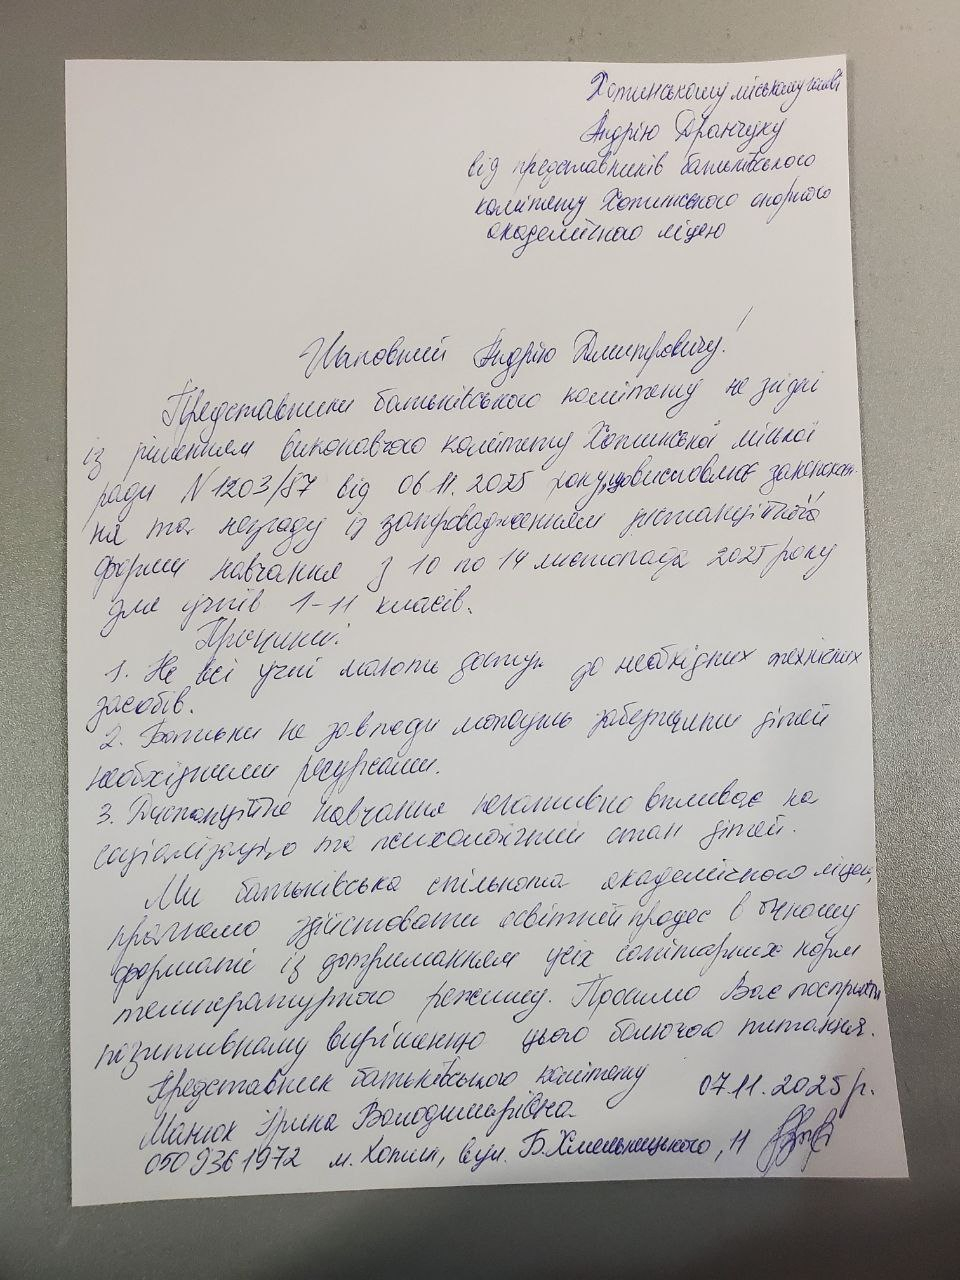 Хотинському міському голові
Андрію Дранчуку
від представників батьківського
комітету Хотинського опорного
академічного ліцею
Шановний Андрію Дмитровичу!
Представники батьківського комітету не згідні
із рішенням виконавчого комітету Хотинської міської
ради N1203/87 від 06.11.2025 року, що висловлює
на та незгоду із запровадженням дистанційної
форми навчання з 10 по 14 листопада 2025 року
для учнів 1-11 класів.
Причини:
1. Не всі учні мають доступ до необхідних технічних
засобів.
2. Батьки не завжди можуть забезпечити дітей
необхідними ресурсами.
3. Дистанційне навчання негативно впливає на
соціалізацію та психологічний стан дітей.
Ми батьківська спільнота академічного ліцею,
прагнемо здійснювати освітній процес в очному
форматі із дотриманням усіх санітарних норм
температурного режиму. Просимо Вас посприяти
позитивному вирішенню цього болючого питання.
Представник батьківського комітету 07.11.2025 р.
Манюк Ірина Володимирівна
050 936 1972 м. Хотин, вул. Б. Хмельницького, 11